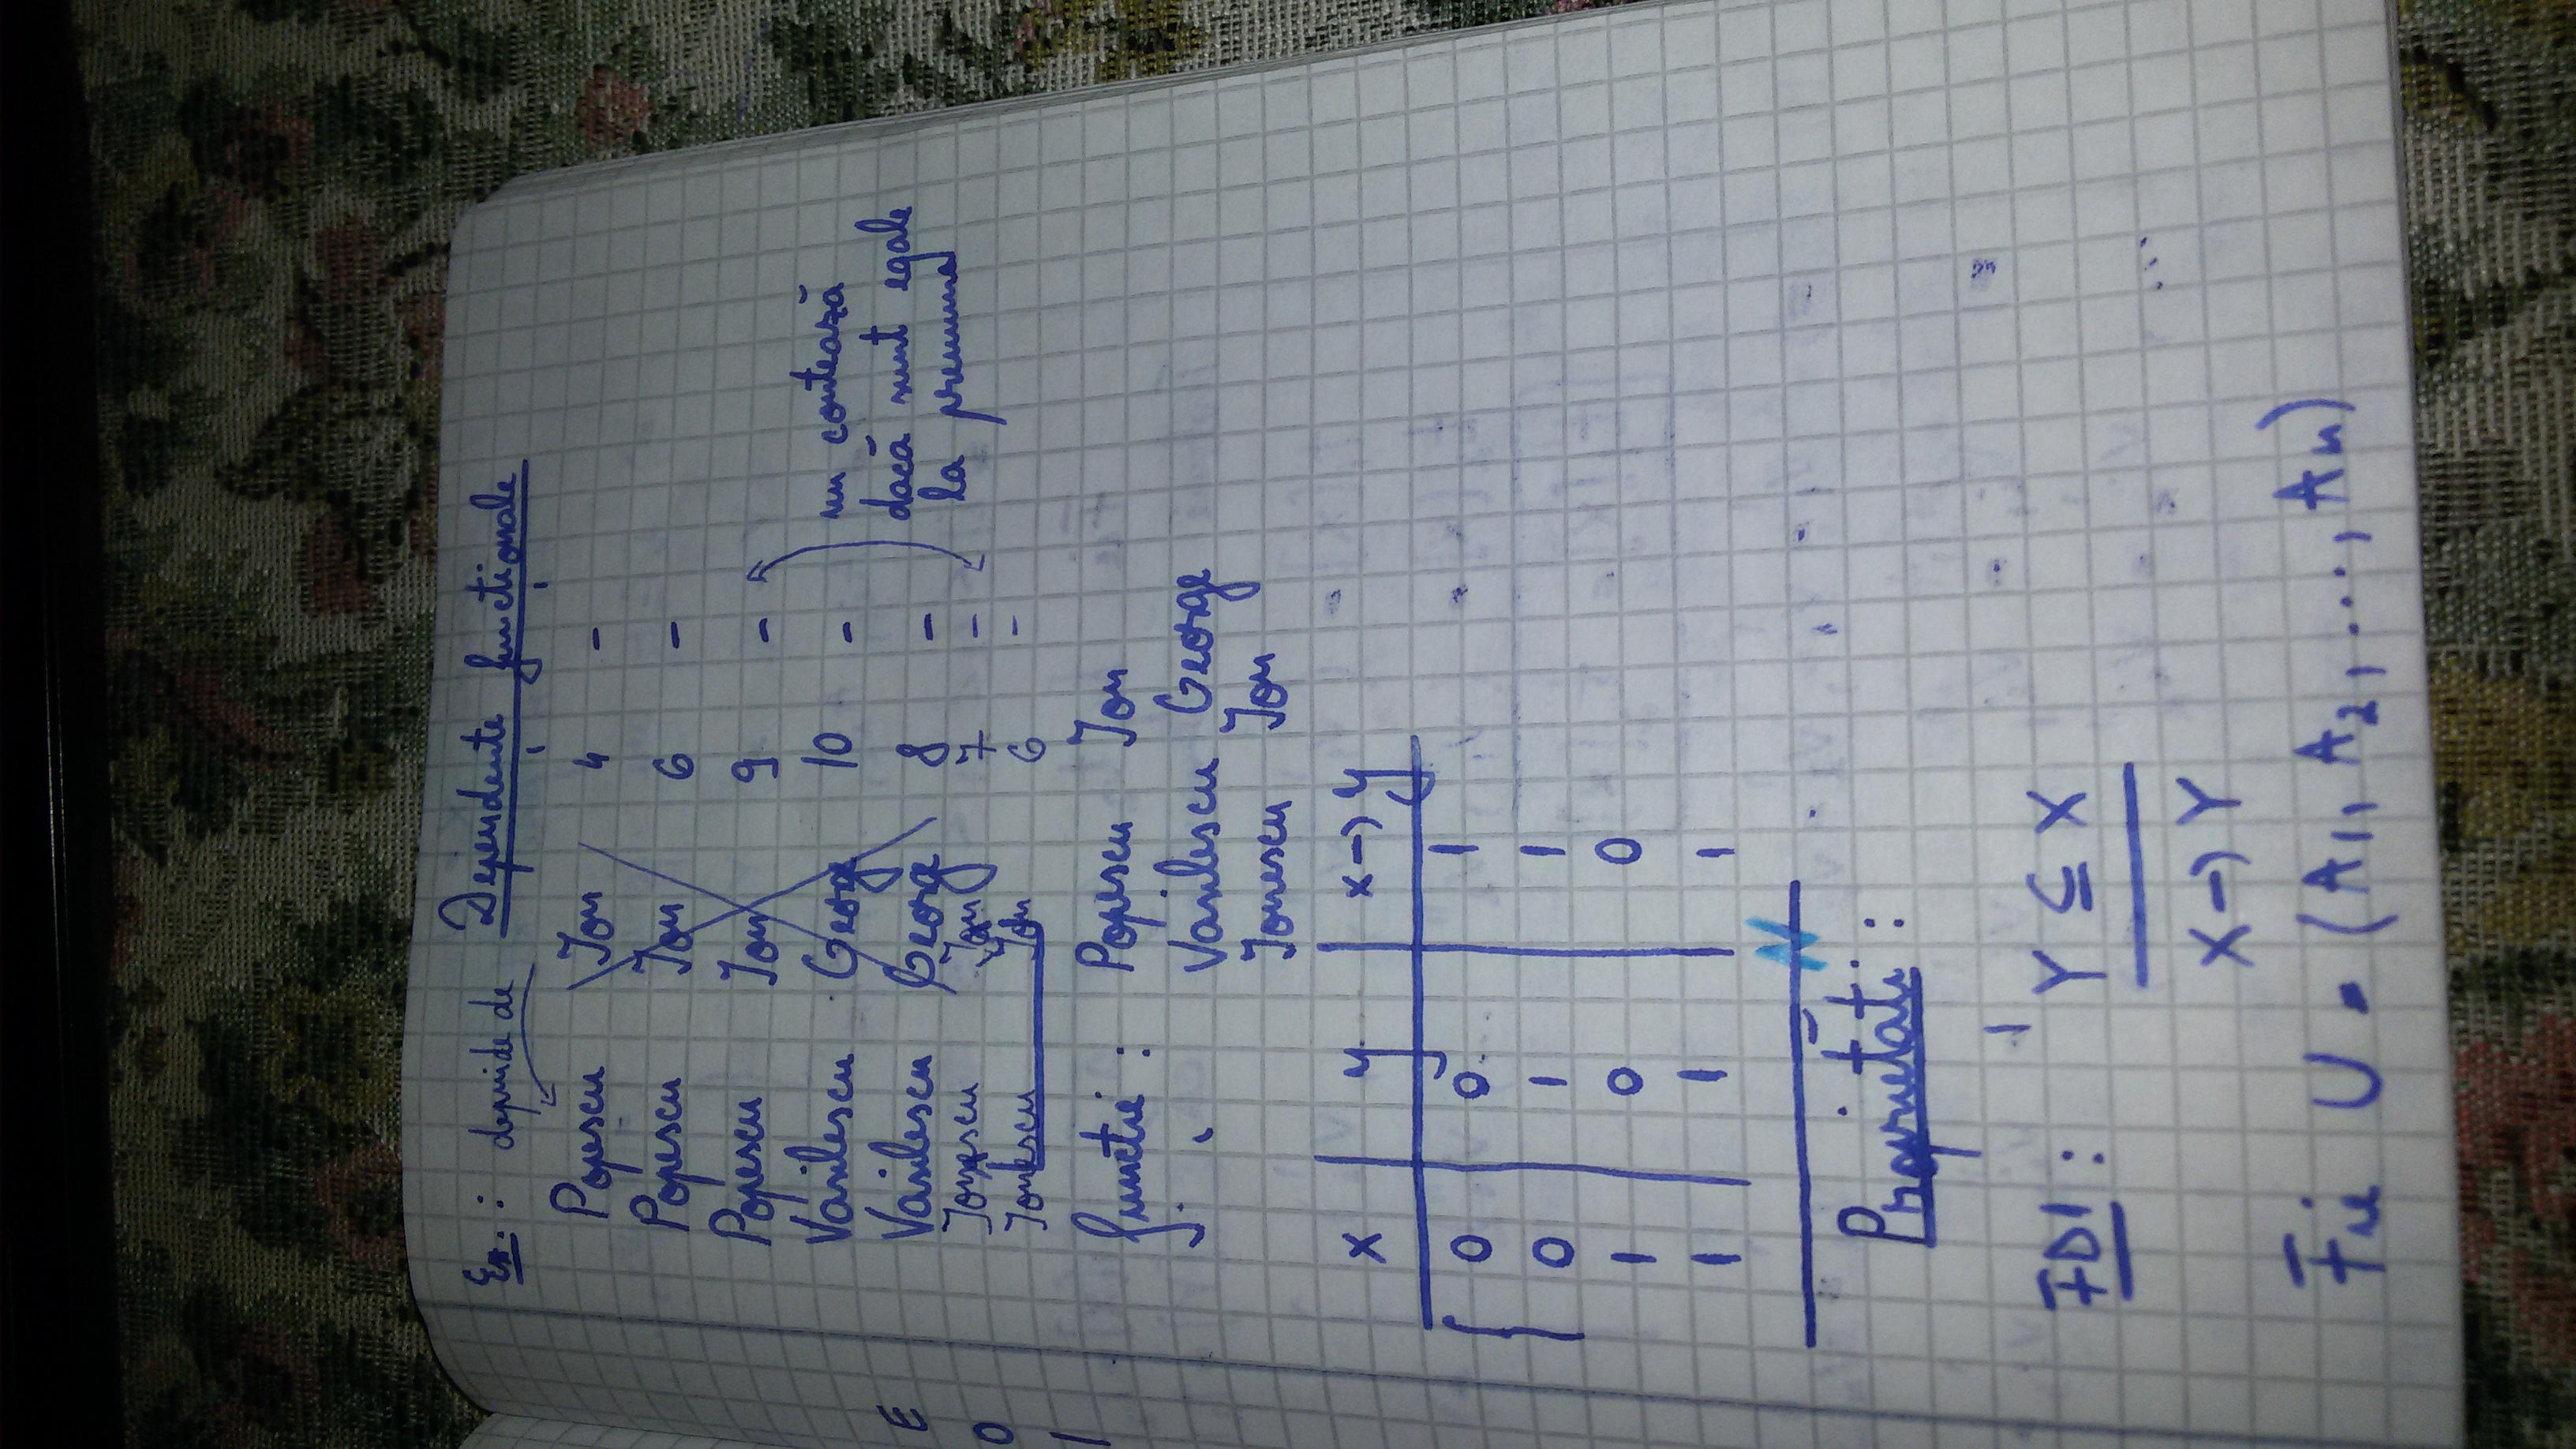 Ex. : depinde de Dependențe funcționale
Popescu Ion 4 -
Popescu Ion 6 -
Popescu Ion 9 -
Vasilescu George 10 -
Vasilescu George 8 -
Ionescu Ion 7 -
Ionescu Ion 6 -
nu contează
dacă sunt egale
la prenume
funcție : Popescu Ion
Vasilescu George
Ionescu Ion
x y x → y
0 0 1
0 1 1
1 0 0
1 1 1
N
Proprietăți :
FD1 : Y ⊆ X
X → Y
Fie U = (A1, A2, ..., An)
E
0
1